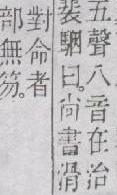 五聲八音在治
裴駰曰。尚書滑
對命者
部無笏。